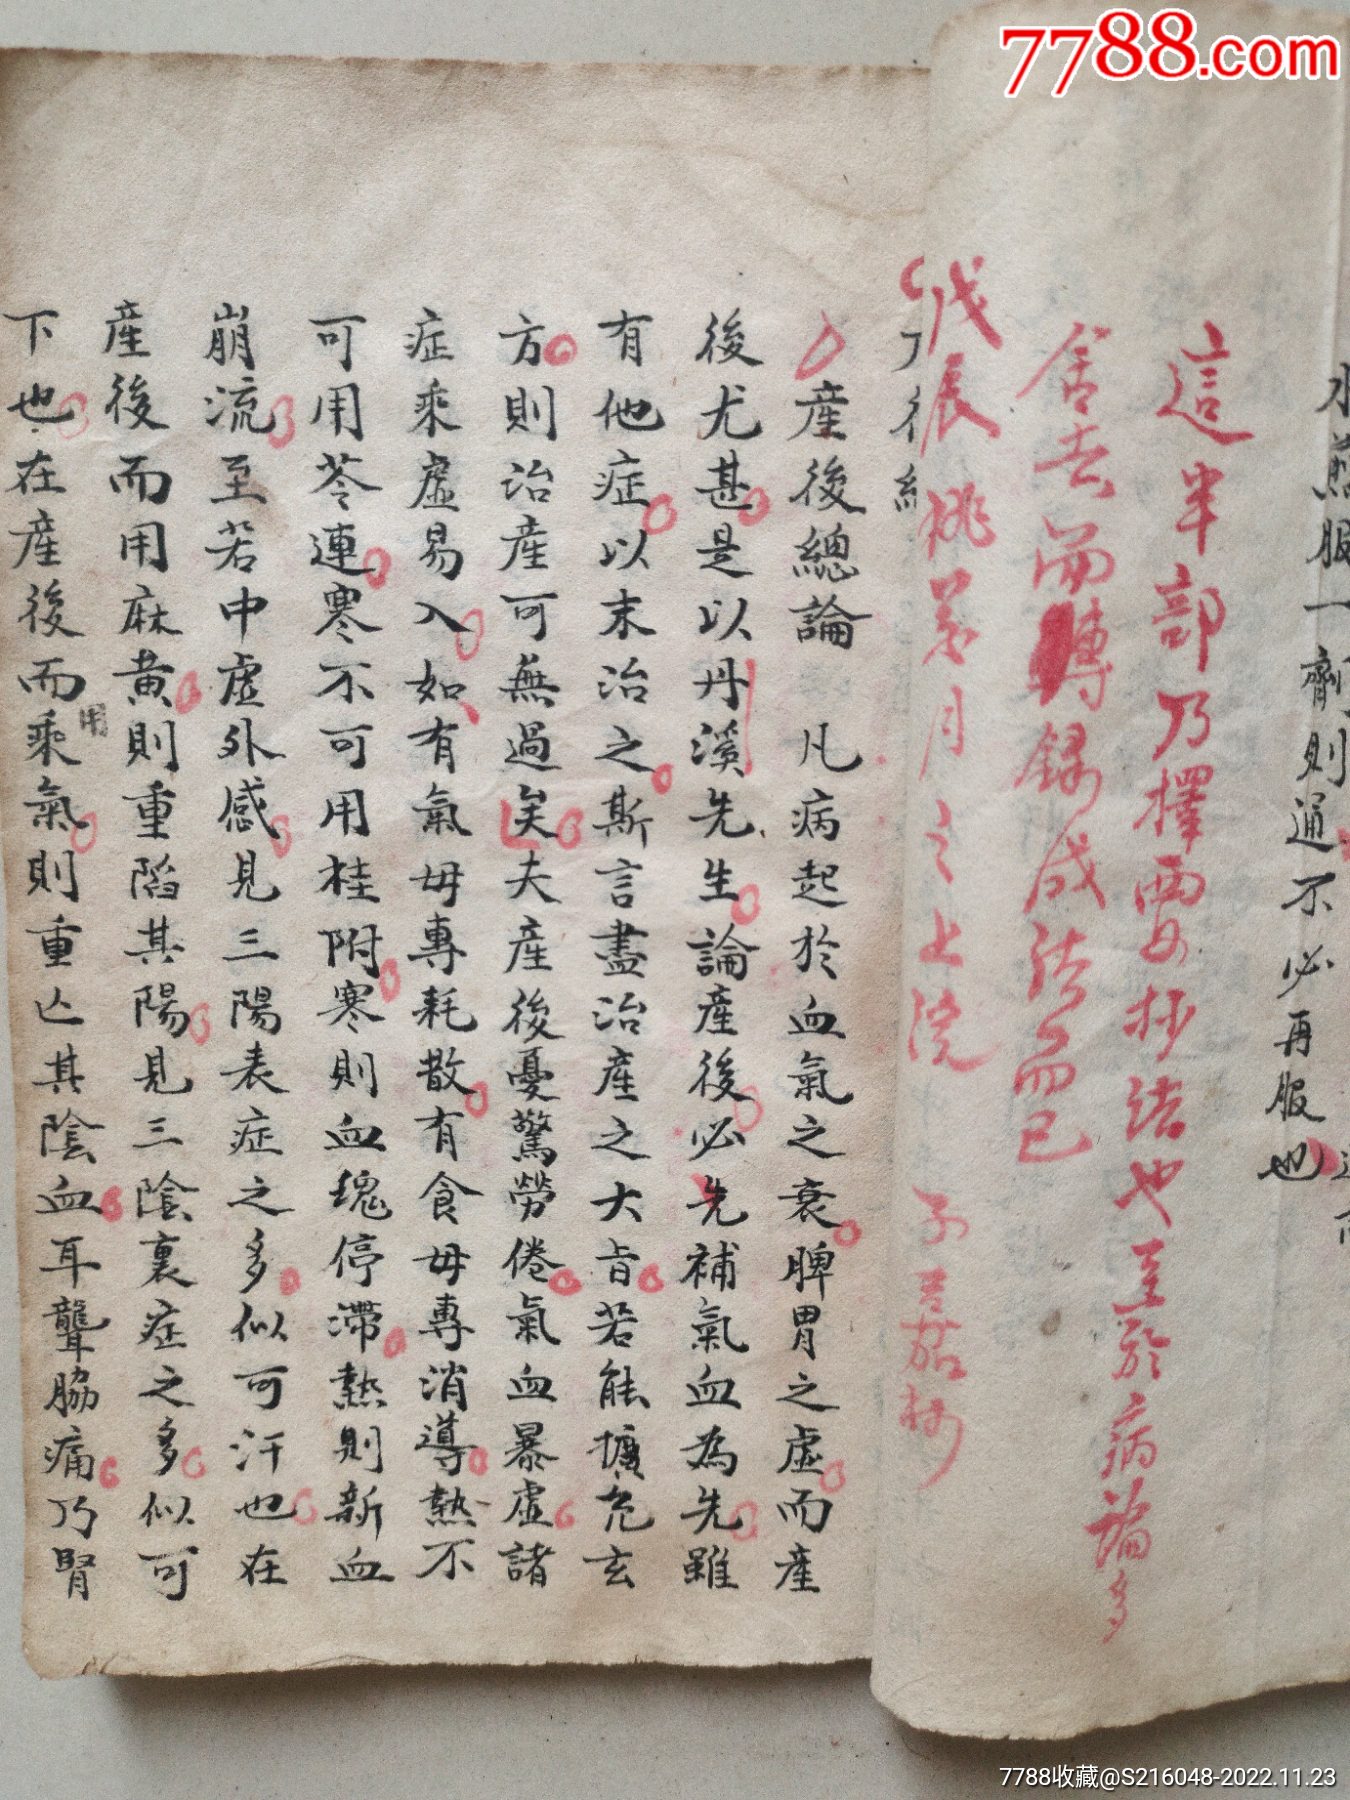 7788.com
水煎服一劑則通不必再服也
這半部乃擇要抄法也至於病論多
舍去而轉錄成法而已
戊辰桃花月之上浣
產後總論 凡病起於血氣之衰脾胃之虛而產
後尤甚是以丹溪先生論產後必先補氣血為先雖
有他症以末治之斯言盡治產之大旨若能擴充玄
方則治產可無過矣夫產後憂驚勞倦氣血暴虛諸
症乘虛易入如有氣毋專耗散有食毋專消導熱不
可用芩連寒不可用桂附寒則血塊停滯熱則新血
崩流至若中虛外感見三陽表症之多似可汗也在
產後而用麻黃則重陷其陽見三陰裏症之多似可
下也在產後而用乘氣則重亡其陰血耳聾脇痛乃腎
7788收藏@S216048-2022.11.23